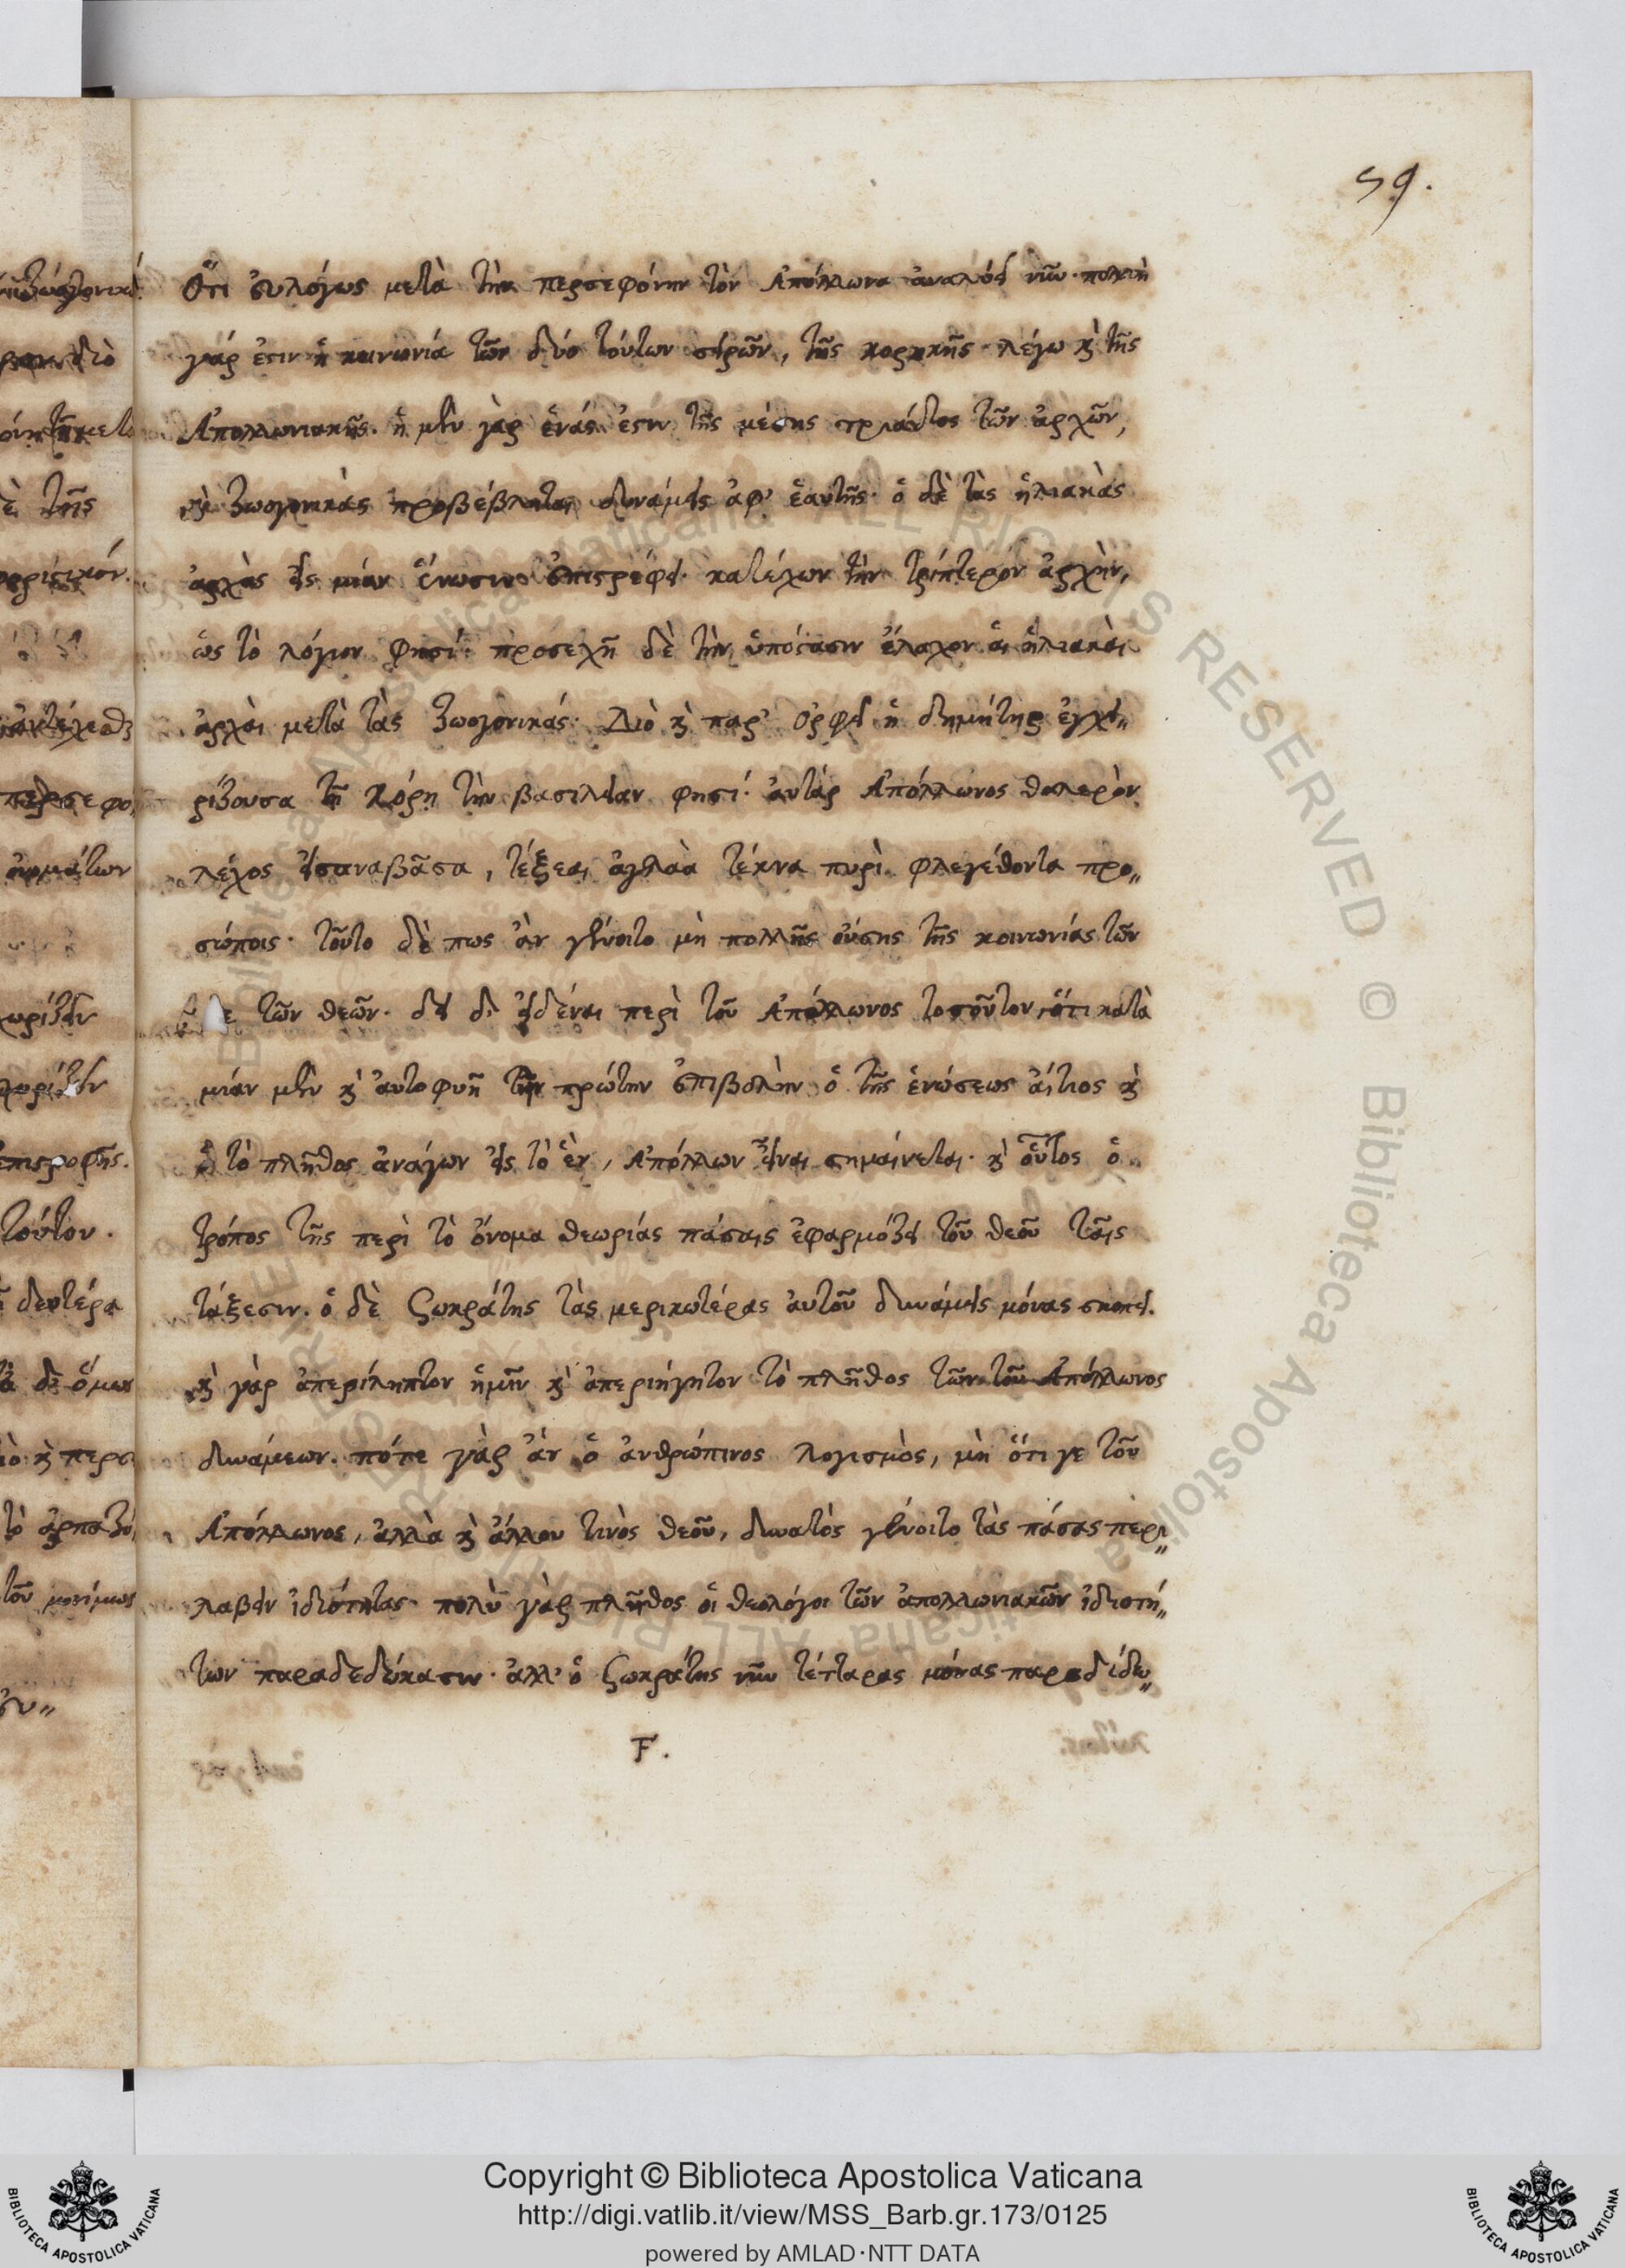 59.
Ὅτι εὐλόγως μετὰ τὴν περσεφόνην τὸν Ἀπόλλωνα ἀναλύει νῦν· πολλὴ
γάρ ἐστιν ἡ κοινωνία τῶν δύο τούτων σειρῶν, τῆς κορικῆς λέγω καὶ τῆς
Ἀπολλωνιακῆς. ἡ μὲν γὰρ ἑνάς ἐστιν τῆς μέσης τριάδος τῶν ἀρχῶν,
καὶ ζωογονικὰς προβέβληται δυνάμεις ἀφ' ἑαυτῆς· ὁ δὲ τὰς ἡλιακὰς
ἀρχὰς εἰς μίαν ἕνωσιν ἐπιστρέφει· κατέχων τὴν τρίπτερον ἀρχὴν,
ὥς τὸ λόγιον φησί· προσεχῆ δὲ τὴν ὑπόστασιν ἔλαχον αἱ ἡλιακαὶ
ἀρχαὶ μετὰ τὰς ζωογονικάς· Διὸ καὶ παρ' Ὀρφεῖ ἡ δημήτηρ ἐγχει„
ρίζουσα τῇ Κόρῃ τὴν βασιλείαν φησί· ἀυτάρ Ἀπόλλωνος θαλερὸν
λέχος εἰσαναβᾶσα, τέξεαι ἀγλαὰ τέκνα πυρὶ φλεγέθοντα προ„
σώποις· τοῦτο δὲ πως ἂν γένοιτο μὴ πολλῆς οὔσης τῆς κοινωνίας τῶν
τῶν θεῶν· δεῖ δὲ εἰδέναι περὶ τοῦ Ἀπόλλωνος τοσοῦτον, ὅτι κατὰ
μίαν μὲν καὶ ἀυτοφυῆ τὴν πρώτην ἐπιβολὴν ὁ τῆς ἑνώσεως ἄιτιος καὶ
ὁ τὸ πλῆθος ἀνάγων εἰς τὸ ἓν, Ἀπόλλων εἶναι σημαίνεται· καὶ οὗτος ὁ
τρόπος τῆς περὶ τὸ ὄνομα θεωρίας πάσαις ἐφαρμόζει τοῦ θεοῦ ταῖς
τάξεσιν. ὁ δὲ Σωκράτης τὰς μερικωτέρας ἀυτοῦ δυνάμεις μόνας σκοπεῖ.
καὶ γὰρ ἀπερίληπτον ἡμῖν καὶ ἀπεριήγητον τὸ πλῆθος τῶν τοῦ Ἀπόλλωνος
δυνάμεων. πότε γὰρ ἂν ὁ ἀνθρώπινος λογισμὸς, μὴ ὅτι γε τοῦ
Ἀπόλλωνος, ἀλλὰ καὶ ἄλλου τινὸς θεοῦ, δυνατὸς γένοιτο τὰς πάσας περι„
λαβεῖν ἰδιότητας· πολὺ γὰρ πλῆθος οἱ θεολόγοι τῶν ἀπολλωνιακῶν ἰδιοτή„
των παραδεδώκασιν· ἀλλ' ὁ Σωκράτης νῦν τέτταρας μόνας παραδίδω„
F.
Copyright © Biblioteca Apostolica Vaticana
http://digi.vatlib.it/view/MSS_Barb.gr.173/0125
powered by AMLAD·NTT DATA